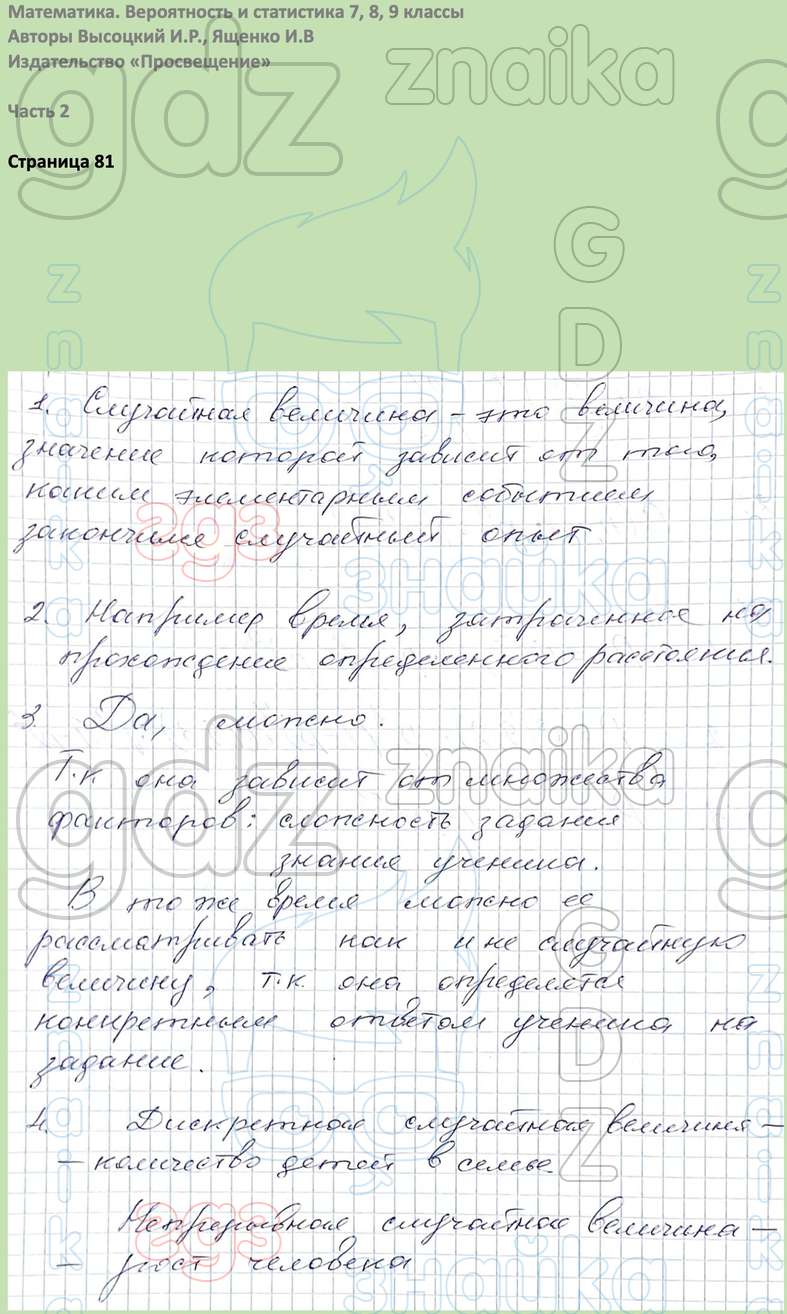 Математика. Вероятность и статистика 7, 8, 9 классы
Авторы Высоцкий И.Р., Ященко И.В
Издательство «Просвещение»
Часть 2
Страница 81
1. Случайная величина – это величина,
значение которой зависит от того,
каким элементарным событием
закончился случайный опыт
2. Например время, затраченное на
прохождение определенного расстояния.
3 Да, можно.
Т.к она зависит от множества
факторов: сложность задания
знания ученика.
В то же время можно ее
рассматривать как и не случайную
величину, т.к. она определятся
конкретным ответом ученика на
задание.
4. Дискретная случайная величина –
– количество детей в семье.
Непрерывная случайная величина –
– рост человека
gdz
znaika
GDZ
znaika
гдз
знайка
gdz
znaika
GDZ
znaika
гдз
знайка